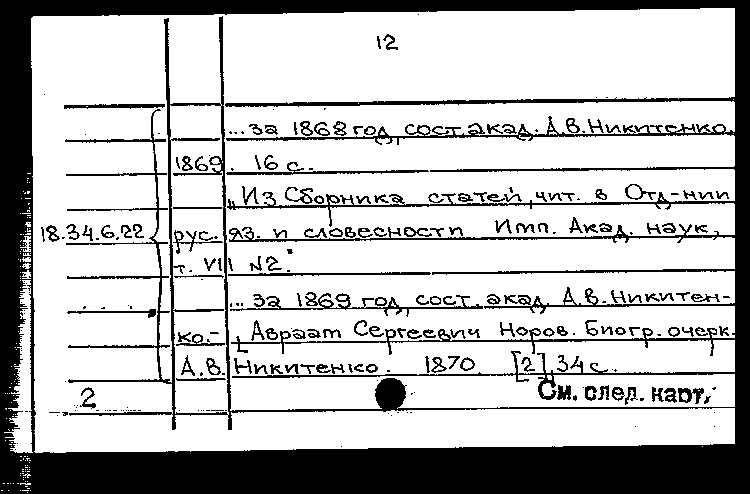 12
... за 1868 год, сост. акад. А.В. Никитенко.
1869. 16 с.
„Из Сборника статей, чит. в Отд-нии
18.34.6.22 рус. яз. и словесности Имп. Акад. наук,
т. VII №2."
... за 1869 год, сост. акад. А.В. Никитен-
ко. - [Авраам Сергеевич Норов. Биогр. очерк.
А.В. Никитенко. 1870. [2], 34 с.
2 См. след. карт.